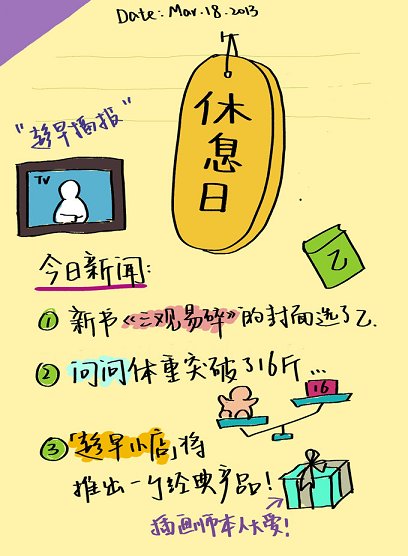 Date: Mar.18.2013
休息日
"趁早播报"
TV
乙
今日新闻:
① 新书《三观易碎》的封面选了乙.
② 问问体重突破了16斤...
16
③「趁早小店」将
推出一个经典产品!
插画师本人大爱!